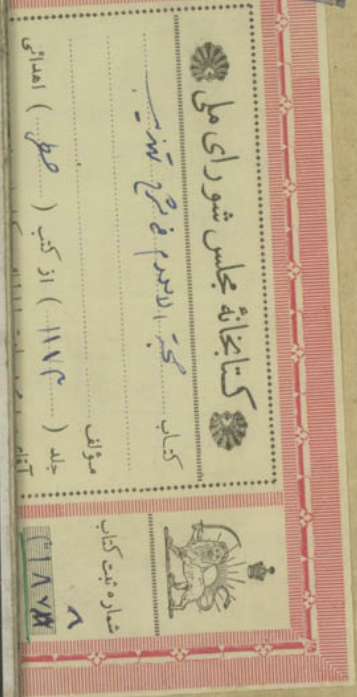 کتابخانهٔ مجلس شورای ملی
کتاب حجة الاسلام فی شرح تهذیب
مؤلف
جلد (۱۱۷۳) از کتب (خطی) اهدائی
آقای
شماره ثبت کتاب